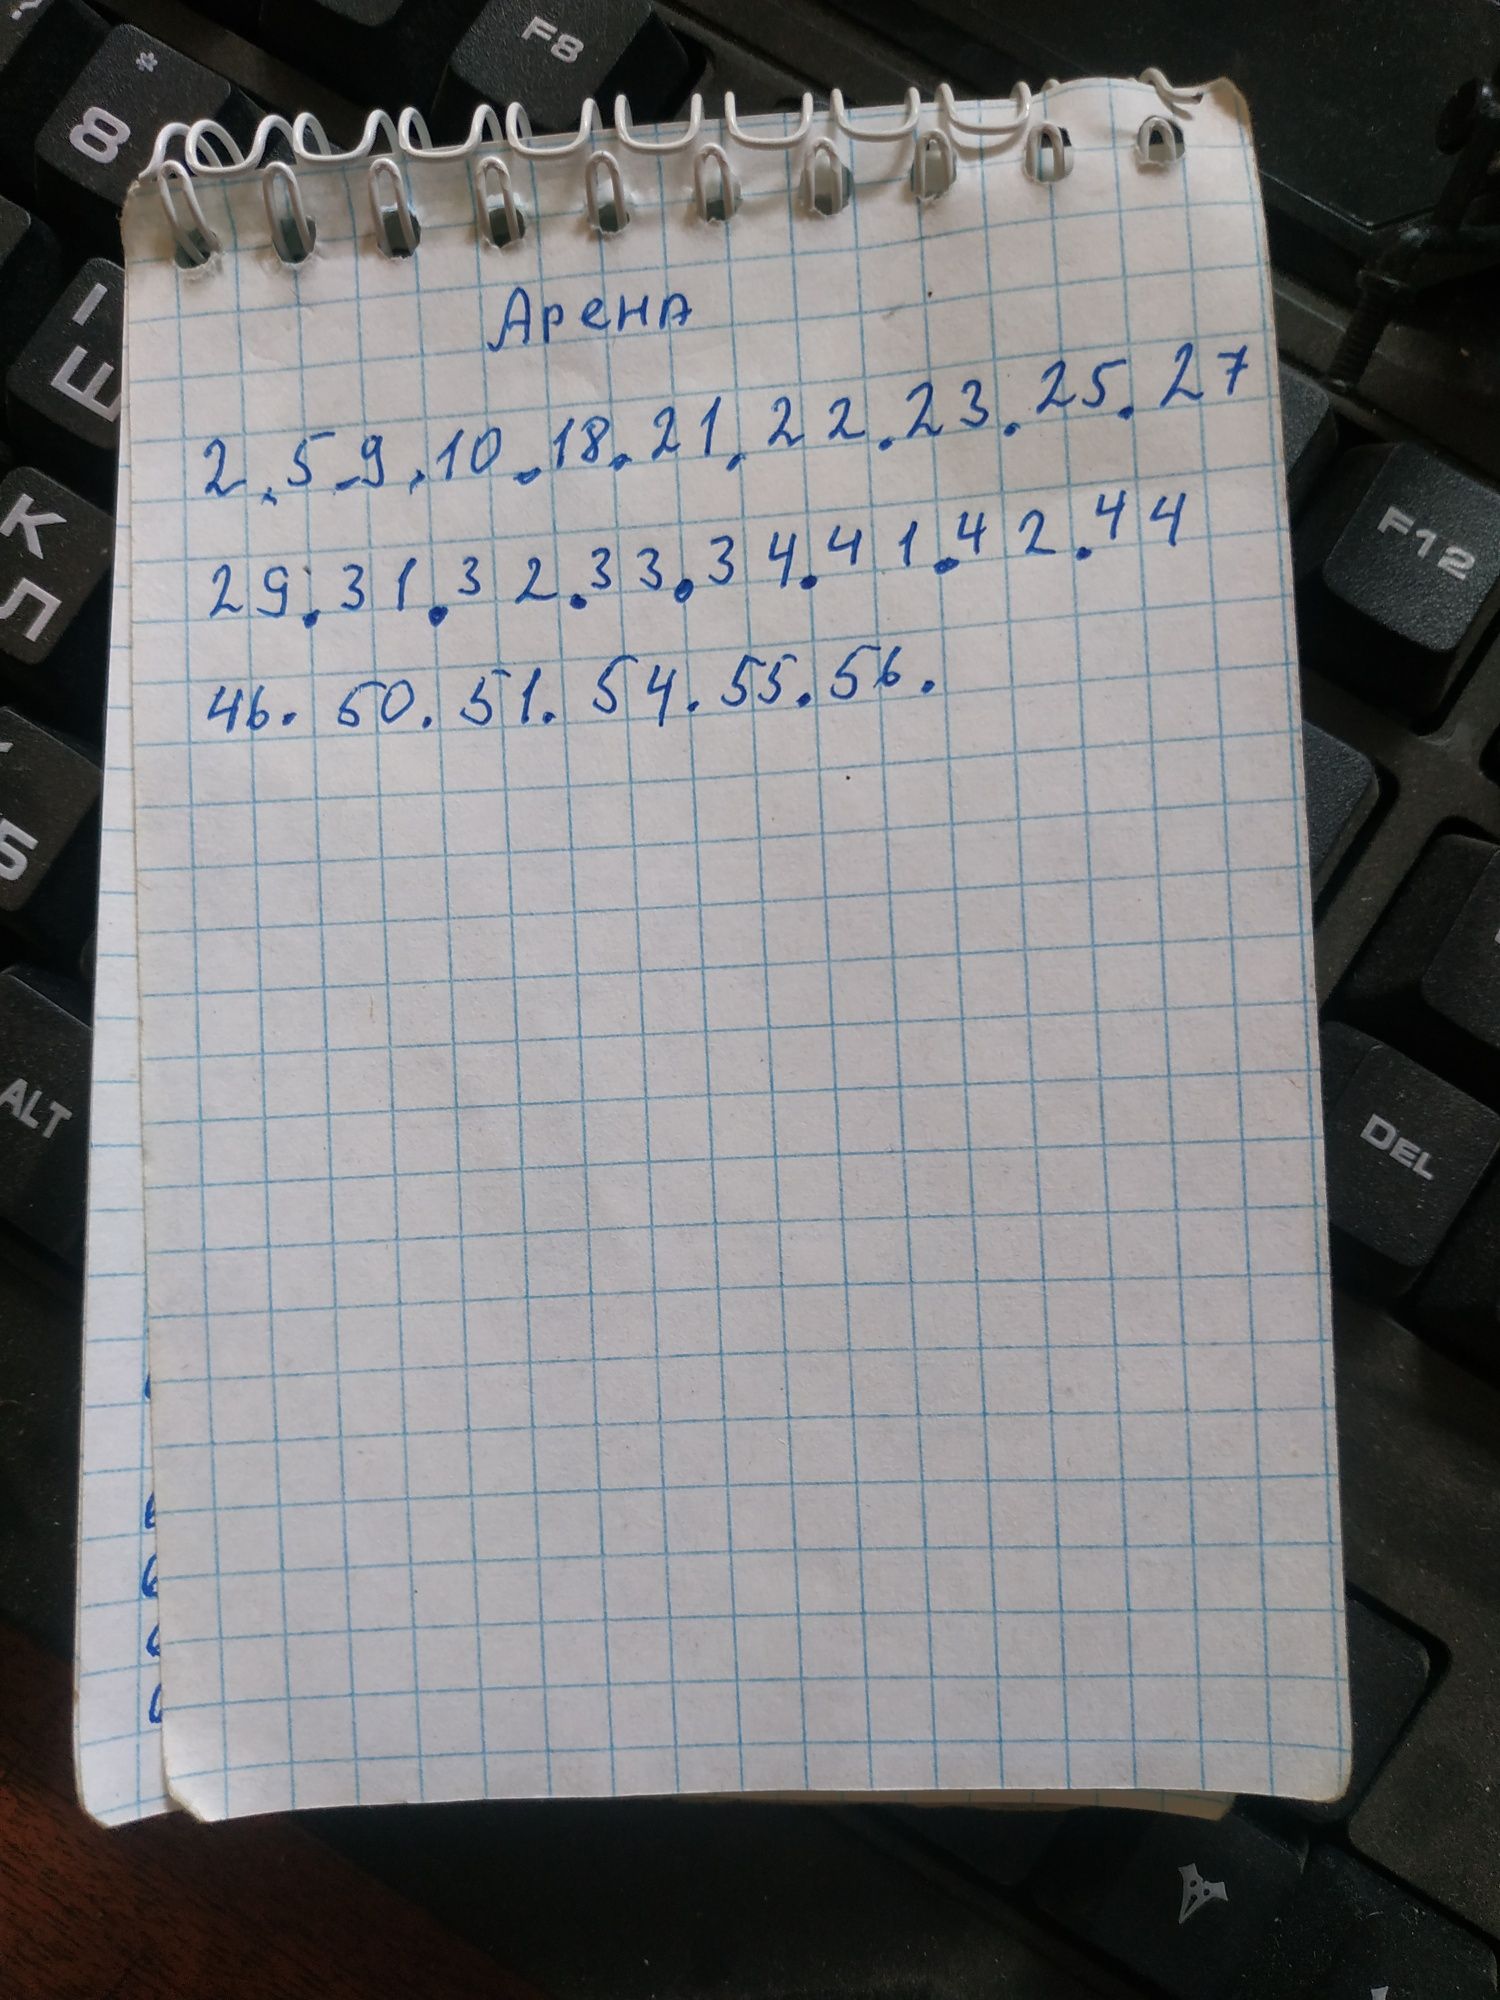 Арена
2.5.9.10.18.21.22.23.25.27
29.31.32.33.34.41.42.44
46.50.51.54.55.56.
* 8
F8
I Ш
К Л
Б
ALT
F12
DEL